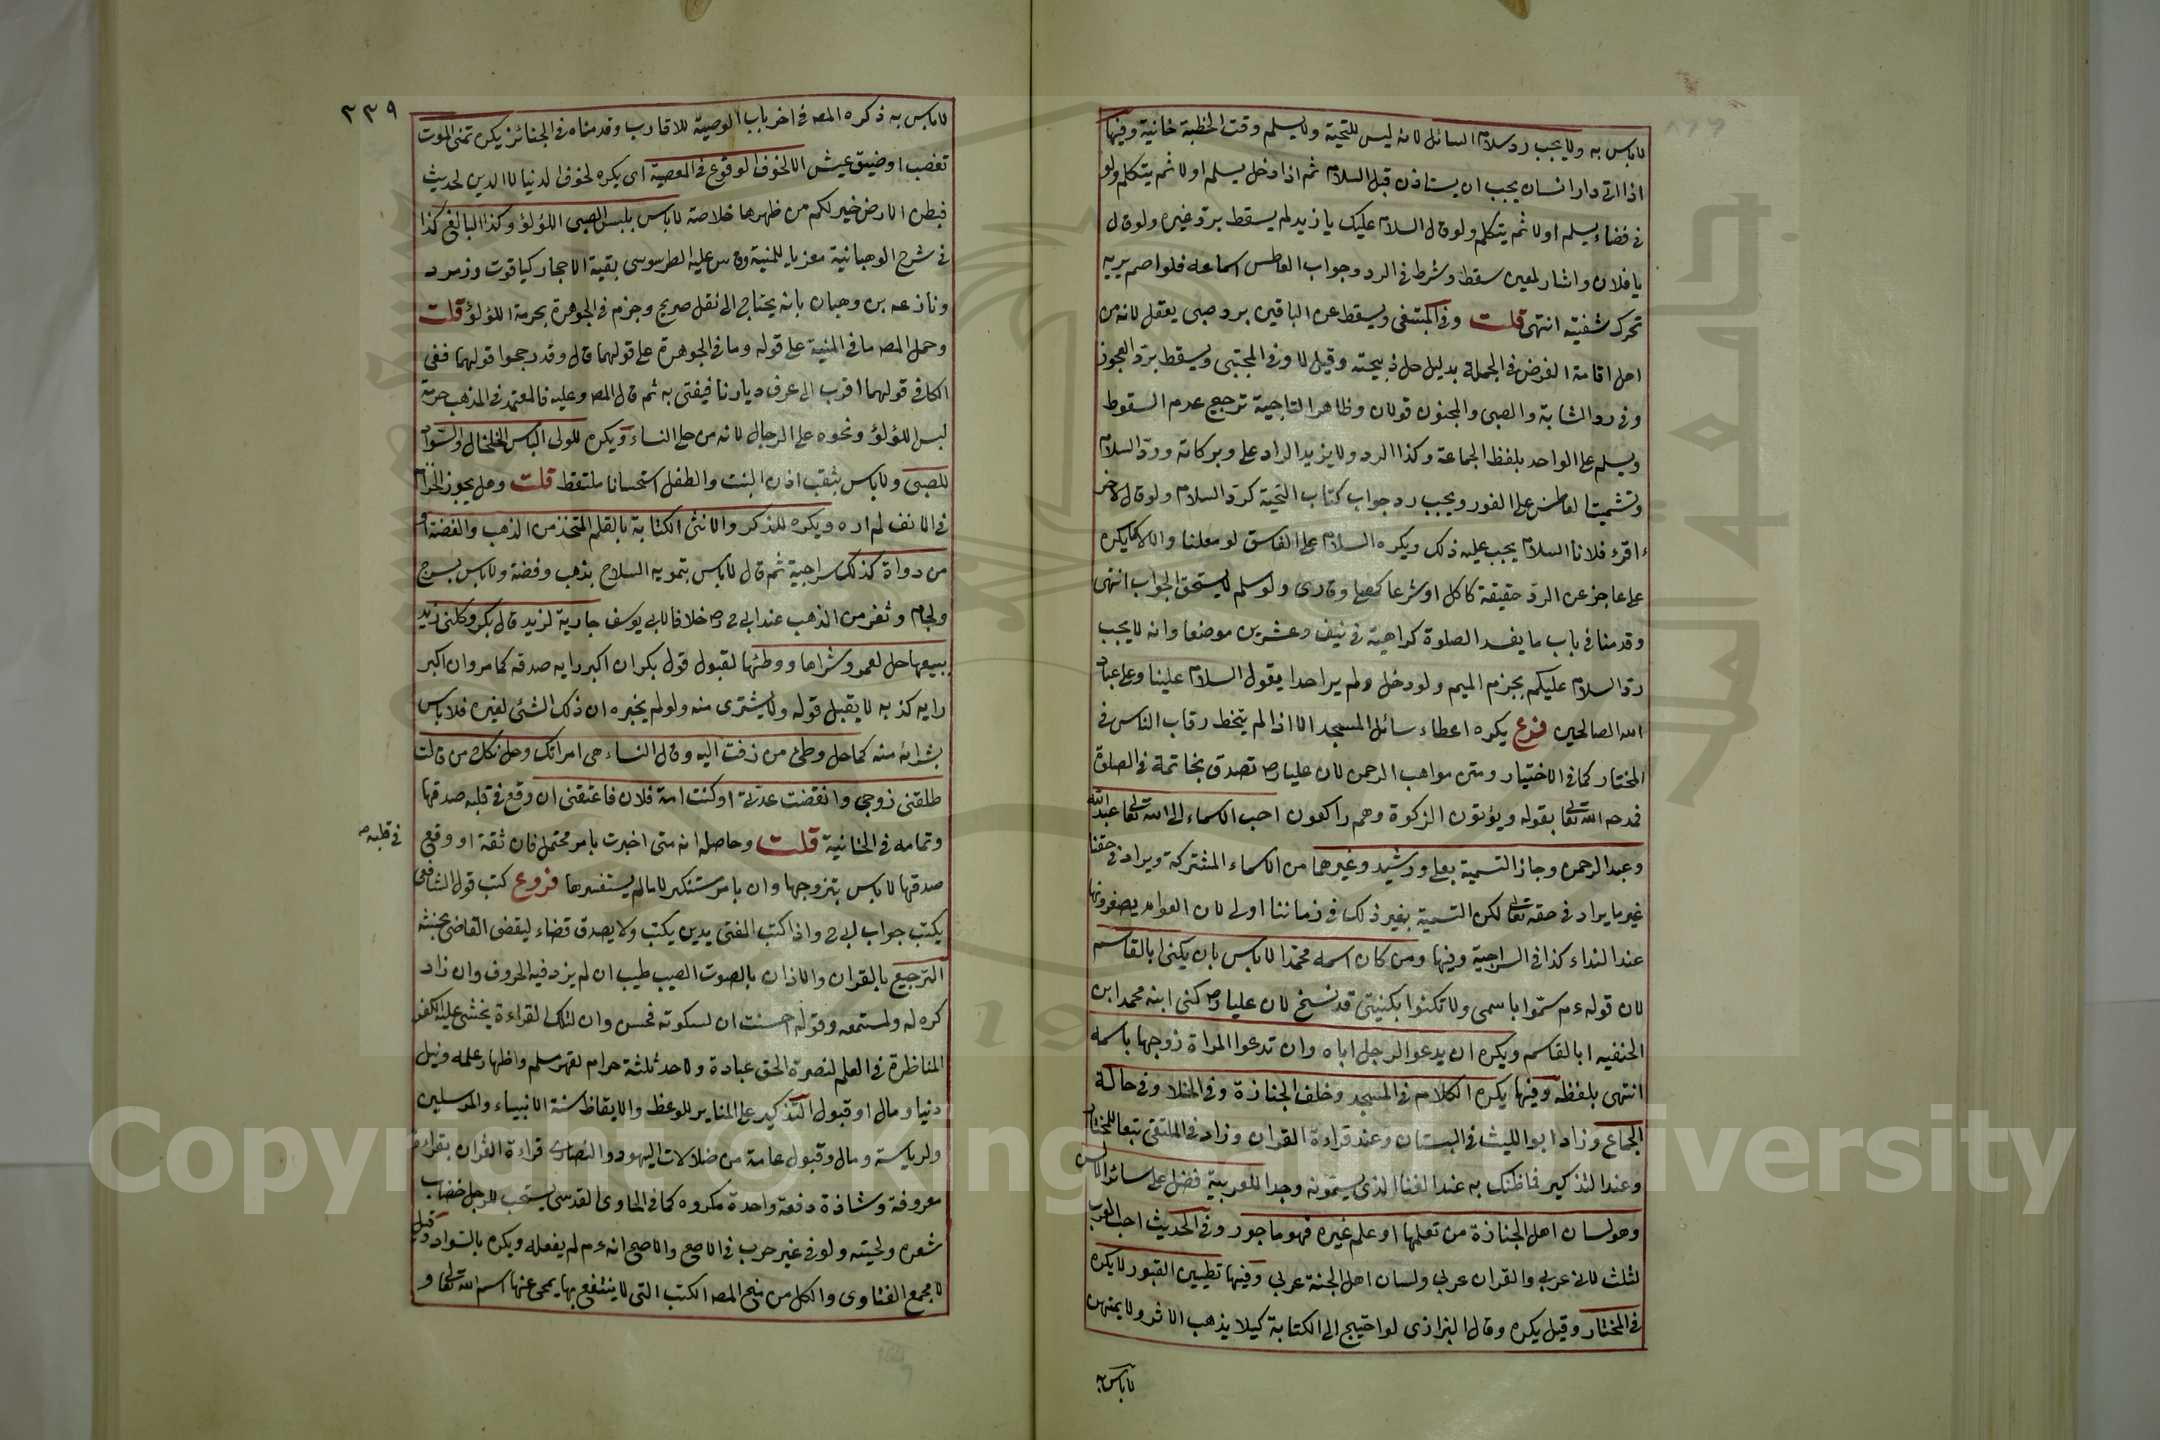 لاباس به ولا يجب رد سلام السائل لانه ليس للتحية ولا يسلم وقت الخطبة خانية وفيها
اذا اتى دار انسان يجب ان يستاذن قبل السلام ثم اذا دخل يسلم اولا ثم يتكلم ولو
في فضاء يسلم اولا ثم يتكلم ولو قال السلام عليك يا زيد لم يسقط برد غيره ولو قال
يا فلان واشار لمعين سقط وشرط في الرد وجواب العاطس اسماعه فلو اصم يريه
تحرك شفتيه انتهى قلت وفي المبتغى ويسقط عن الباقين برد صبي يعقل لانه من
اهل اقامة الفرض في الجملة بدليل حل ذبيحته وقيل لا وفي المجتبى ويسقط برد العجوز
وفي رد الشابة والصبي والمجنون قولان وظاهر التاجية ترجيح عدم السقوط
ويسلم على الواحد بلفظ الجماعة وكذا الرد ولا يزيد الراد على وبركاته ورد السلام
وتشميت العاطس على الفور ويجب رد جواب كتاب التحية كرد السلام ولو قال لآخر
اقرء فلانا السلام يجب عليه ذلك ويكره السلام على الفاسق لو معلنا والا لا كما يكره
على عاجز عن الرد حقيقة كاكل او شرعا كمصل وقارى ولو سلم لا يستحق الجواب انتهى
وقدمنا في باب ما يفسد الصلوة كراهية في نيف وعشرين موضعا وانه لا يجب
رد السلام عليكم بجزم الميم ولو دخل ولم ير احدا يقول السلام علينا وعلى عباد
الله الصالحين فرع يكره اعطاء سائل المسجد الا اذا لم يتخط رقاب الناس في
المختار كما في الاختيار ومتن مواهب الرحمن لان عليا رض تصدق بخاتمه في الصلوة
فمدحه الله تعا بقوله ويؤتون الزكوة وهم راكعون احب الاسماء الى الله تعا عبد الله
وعبد الرحمن وجاز التسمية بعلي ورشيد وغيرهما من الاسماء المشتركة ويراد في حقنا
غير ما يراد في حقه تعا لكن التسمية بغير ذلك في زماننا اولى لان العوام يصغرونها
عند النداء كذا في السراجية وفيها ومن كان اسمه محمدا لاباس بان يكنى ابا القاسم
لان قوله ءم سموا باسمي ولا تكنوا بكنيتي قد نسخ لان عليا رض كنى ابنه محمد ابن
الحنفيه ابا القاسم ويكره ان يدعو الرجل اباه وان تدعوا المراة زوجها باسمه
انتهى بلفظه وفيها يكره الكلام في المسجد وخلف الجنازة وفي الخلا وفي حالة
الجماع وزاد ابو الليث في البستان وعند قراءة القران وزاد في الملتقى تبعا للمختار
وعند التذكير فما ظنك به عند الغنا الذي يسمونه وجدا للعربية فضل على سائر الالسن
وهو لسان اهل الجنازة من تعلمها او علم غيره فهو ماجور وفي الحديث احب العرب
لثلث لاني عربي والقران عربي ولسان اهل الجنة عربي وفيها تطيين القبور لا يكره
في المختار وقيل يكره وقال البزازي لو احتيج الى الكتابة كيلا يذهب الاثر ولا يمتهن
لاباس
٣٣٩
لاباس به ذكره المص في اخر باب الوصية للاقارب وقدمناه في الجنائز يكره تمنى الموت
تغضب او ضيق عيش الا لخوف الوقوع في المعصية اى يكره لخوف الدنيا لا الدين لحديث
فبطن الارض خير لكم من ظهرها خلاصة لاباس بلبس الصبي اللؤلؤ وكذا البالغ كذا
في شرح الوهبانية معزيا للمنية وقاس عليه الطرسوسي بقية الاحجار كياقوت وزمرد
ونازعه بن وهبان بانه يحتاج الى نقل صريح وجزم في الجوهرة بحرمة اللؤلؤ قلت
وحمل المص ما في المنية على قوله وما في الجوهرة على قولهما قال وقد رجحوا قولهما ففي
الكافي قولهما اقرب الى عرف ديارنا فيفتى به ثم قال المص وعليه فالمعتمد في المذهب حرمة
لبس اللؤلؤ ونحوه على الرجال لانه من حلي النساء ويكره للولي الباس الخلخال او السوار
للصبي ولاباس بثقب اذان البنت والطفل استحسانا ملتقط قلت وهل يجوز الخزام
في الانف لم اره ويكره للذكر والانثى الكتابة بالقلم المتخذ من الذهب والفضة او
من دواة كذلك سراجية ثم قال لاباس بتمويه السلاح بذهب وفضة ولاباس بسرج
ولجام وثغر من الذهب عند ابي ح رض خلافا لابي يوسف جارية لزيد قال بكر وكلني زيد
ببيعها حل لعمرو شراها ووطئها لقبول قول بكر ان اكبر رايه صدقه كما مر وان اكبر
رايه كذبه لا يقبل قوله ولا يشترى منه ولو لم يخبره ان ذلك الشئ لغيره فلاباس
بشرائه منه كما حل وطئ من زفت اليه وقال النساء هي امراتك وحل نكاح من قالت
طلقني زوجي وانقضت عدتي او كنت امة فلان فاعتقني ان وقع في قلبه صدقها
وتمامه في الخانية قلت وحاصله انه متى اخبرت بامر محتمل فان ثقة او وقع
في قلبه ص
صدقها لاباس بتزوجها وان بامر مستنكر لا مالم يستفسرها فروع كتب قول الشافعي
يكتب جواب ابي ح واذا كتب المفتي يدين يكتب ولا يصدق قضاء ليقضي القاضي بحنثه
الترجيع بالقران والاذان بالصوت الصيب طيب ان لم يزد فيه الحروف وان زاد
كره له ولمستمعه وقوله احسنت ان لسكوته فحسن وان لتلك القراءة يخشى عليه الكفر
المناظرة في العلم لنصرة الحق عبادة ولاحد ثلثة حرام لقهر مسلم واظهار علمه ونيل
دنيا ومال او قبول التذكير على المنابر للوعظ والايقاظ سنة الانبياء والمرسلين
ولرياسة ومال وقبول عامة من ضلالات اليهود والنصارى قراءة القران بقراءة
معروفة وشاذة دفعة واحدة مكروه كما في الحاوي القدسي يستحب للرجل خضاب
شعره ولحيته ولو في غير حرب في الاصح والاصح انه ءم لم يفعله ويكره بالسواد وقيل
لا مجمع الفتاوى والكل من منح المص الكتب التي لا ينتفع بها يمحى عنها اسم الله تعا و
Copyright © King Saud University
جامعة الملك
19